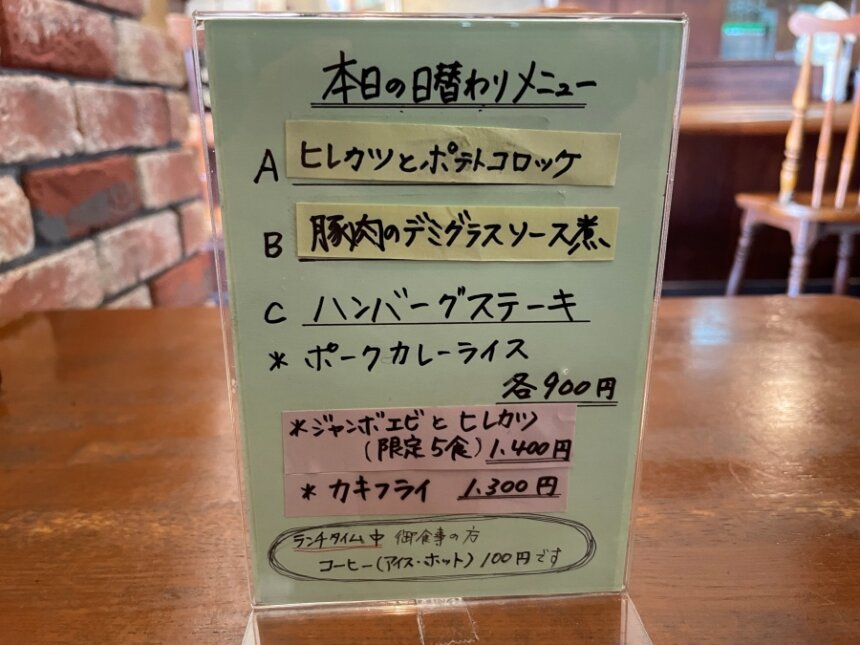 本日の日替わりメニュー
A ヒレカツとポテトコロッケ
B 豚肉のデミグラスソース煮、
C ハンバーグステーキ
* ポークカレーライス
各900円
*ジャンボエビとヒレカツ
(限定5食) 1.400円
* カキフライ 1.300円
ランチタイム中 御食事の方
コーヒー(アイス・ホット) 100円です